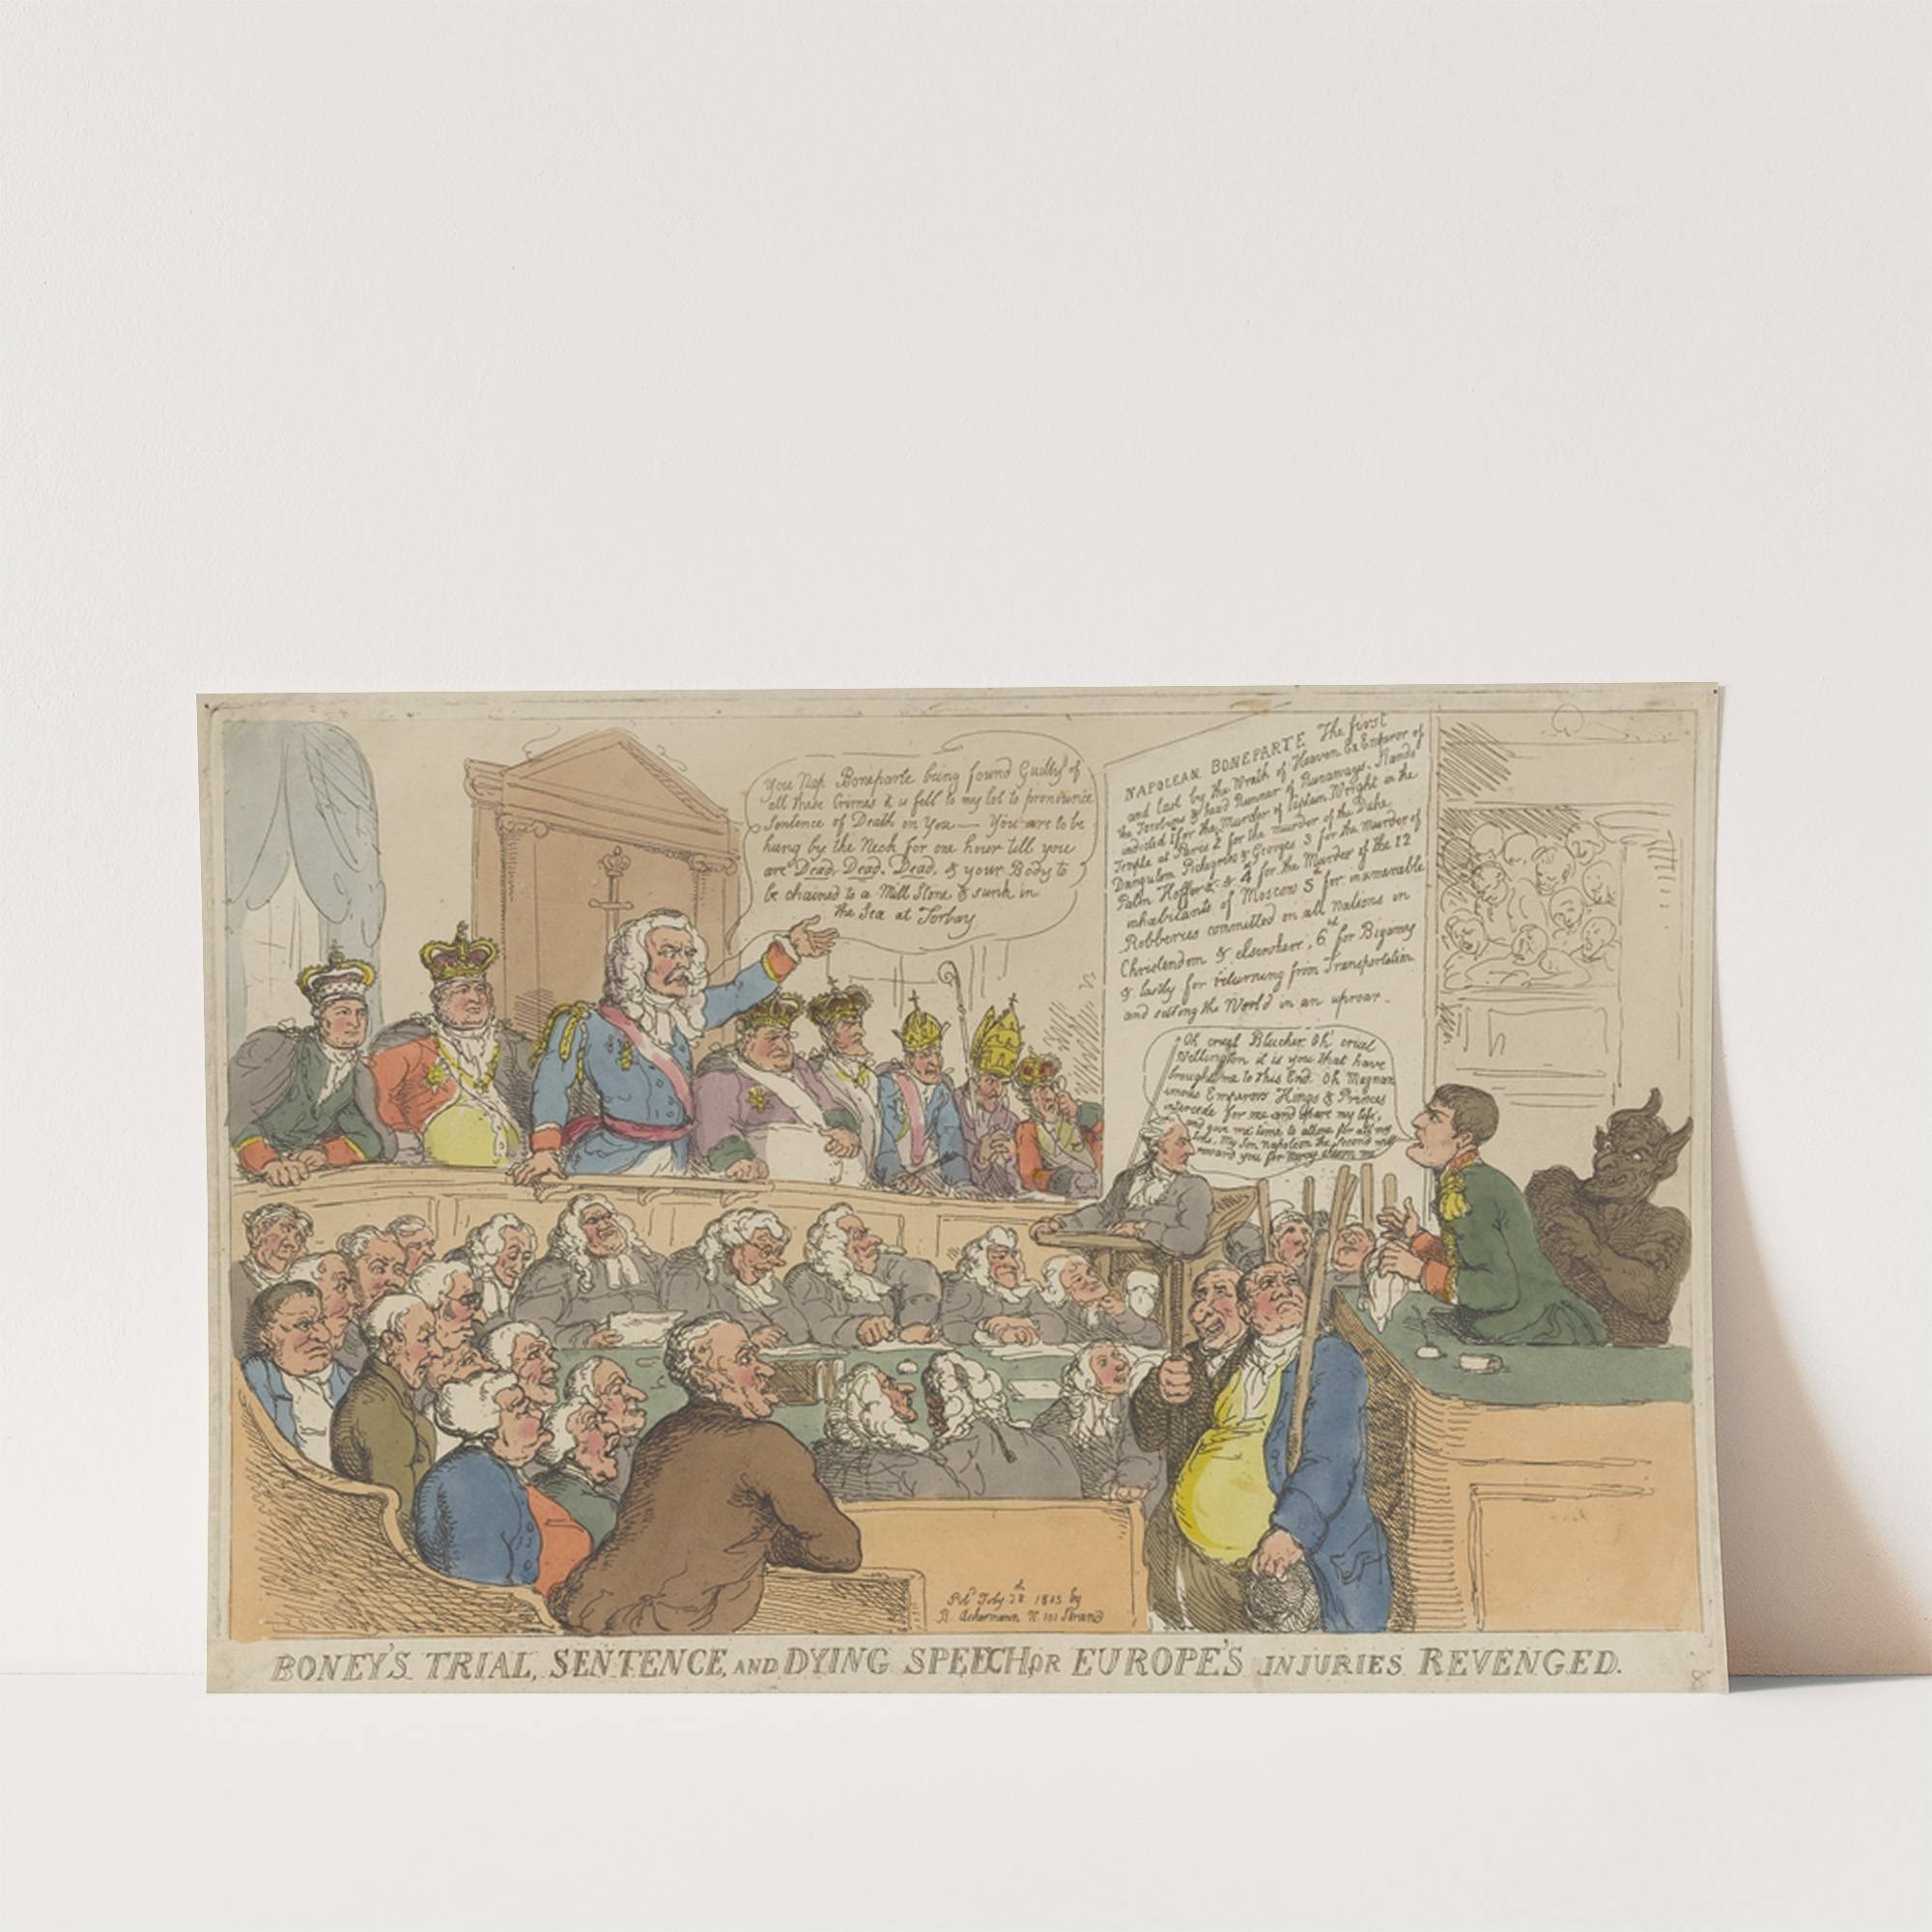 You Nap Boneparte being found Guilty of
all these Crimes it is fell to my lot to pronounce
Sentence of Death on You — You are to be
hung by the Neck for one hour till you
are Dead, Dead, Dead, & your Body to
be chained to a Mill Stone & sunk in
the Sea at Torbay
NAPOLEAN BONEPARTE The first
and last by the Wrath of Heaven Ex Emperor of
the Jacobins & head Runner of Runaways. Stands
indicted 1st for the Murder of Captain Wright in the
Temple at Paris 2d for the murder of the Duke
Danguloin Pichegrew & Georges 3 for the murder of
Palm Hoffer &c &c 4 for the Murder of the 12
inhabitants of Moscow 5 for innumerable
Robberies committed on all nations in
Christendom & elsewhere, 6 for Bigamy
& lastly for returning from Transportation
and setting the World in an uproar.
Oh cruel Blucher Oh cruel
Wellington it is you that have
brought me to this End. Oh Magnan
imous Emperors Kings & Princes
intercede for me and spare my life,
and give me time to attone for all my
Sins. My Son Napoleon the Second will
reward you for Mercy shewn me
Pubd July 28th 1815 by
R. Ackermann N 101 Strand
BONEY'S TRIAL, SENTENCE, AND DYING SPEECH, OR EUROPE'S INJURIES REVENGED.